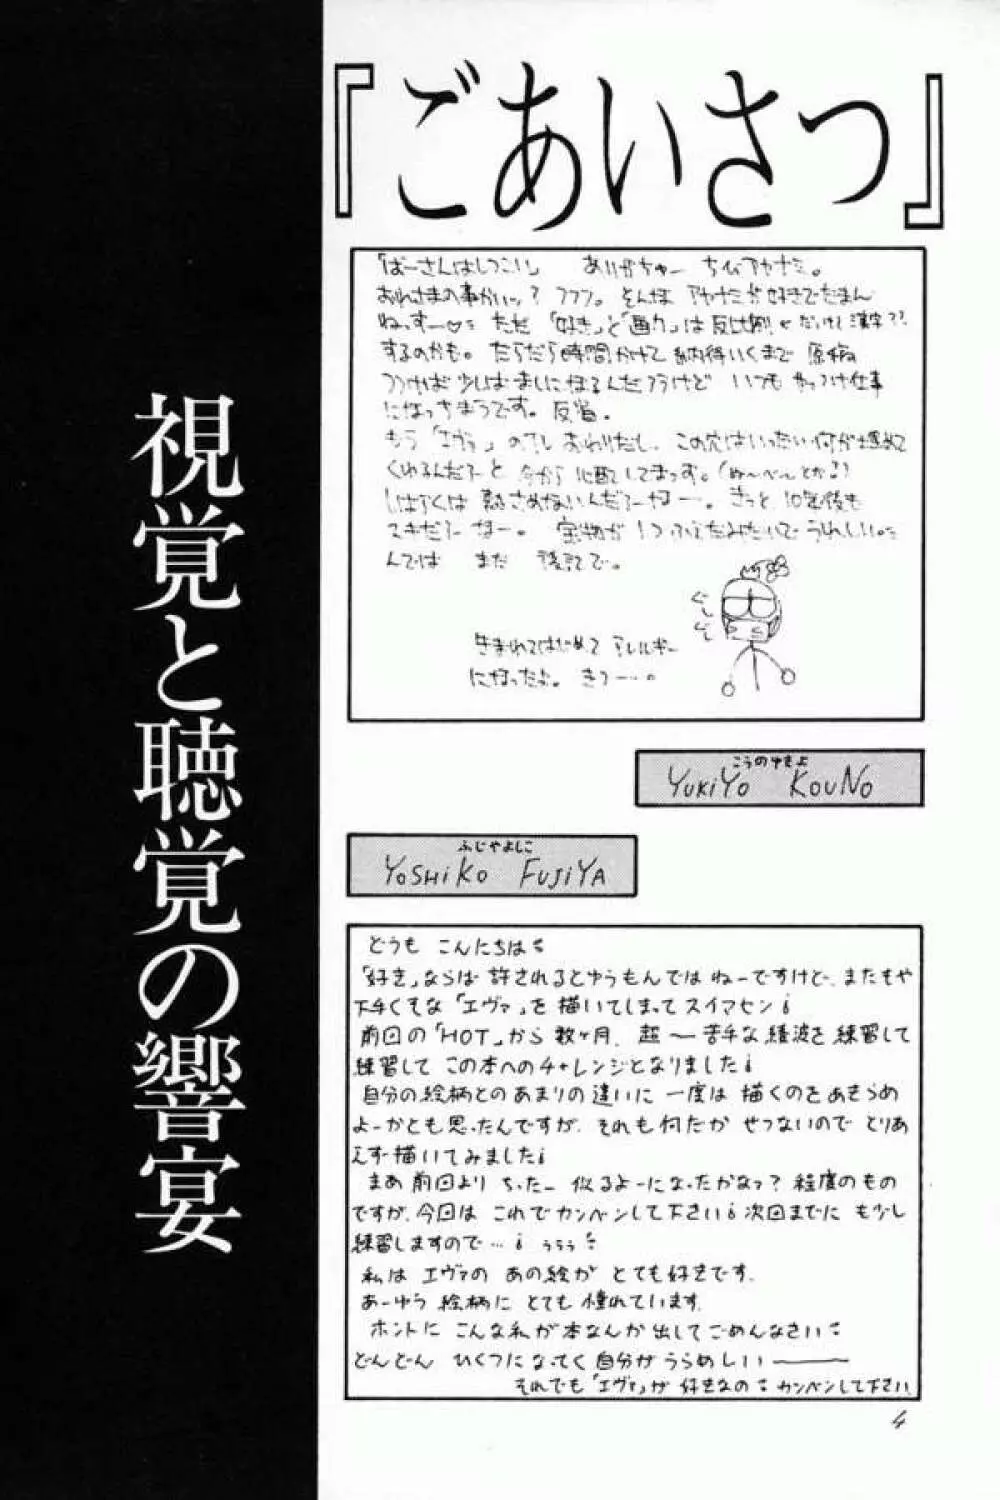 『ごあいさつ』
視覚と聴覚の響宴
「ばーさんはしつこい」 ありがちゅー ちびアヤナミ。
おれさまの事かいッ? フフフ。そんなアヤナミが好きでたまん
ねっすー♡ ただ「好き」と「画力」は反比例 だっけし漢字??
するのかも。だらだら時間かけて納得いくまで原稿
フつければ少しはましになるんだろうけど いつもやっつけ仕事
になっちまうです。反省。
もう「エヴァ」のTV おわりだし、この穴はいったい何が埋めて
くれるんだろーと 今から心配してまっす。(ぬ〜べ〜とかる)
しばらくは熱さめないんだろーなー…。きっと10年後も
スキだろーなー。 宝物が1つふえたみたいでうれしい。
んでは また 後記で。
ぐし
ぐし
生まれてはじめて アレルギー
になったよ。きつー…。
こうのゆきよ
YUKiYO KOUNO
ふじやよしこ
YOSHiKO FUJiYA
どうも こんにちは
「好き」ならば 許されるとゆうもんでは ねーですけど、またもや
下手くそな「エヴァ」を 描いてしまって スイマセン!
前回の「HOT」から 数ヶ月、超〜苦手な 綾波を 練習して
練習して この本へのチャレンジとなりました!
自分の絵柄とのあまりの違いに 一度は 描くのをあきらめ
よーかとも思ったんですが、それも何だか せつないので とりあ
えず描いてみました!
まあ 前回より ちったー 似るよーになったかなっ? 程度のもの
ですが、今回は これでカンベンして下さい! 次回までに もう少し
練習しますので…! ううう
私は エヴァの あの絵が とても好きです。
あーゆう 絵柄に とても 憧れています。
ホントに こんな私が本なんか出してごめんなさい
どんどん ひくつになってく 自分がうらめしい――
それでも「エヴァ」が 好きなの カンベンして下さい。
4